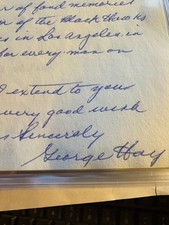 r of fond memories
r of the Black Hawks
es in Los Angeles in
for every man on
I extend to you
very good wish
Sincerely
George Hay